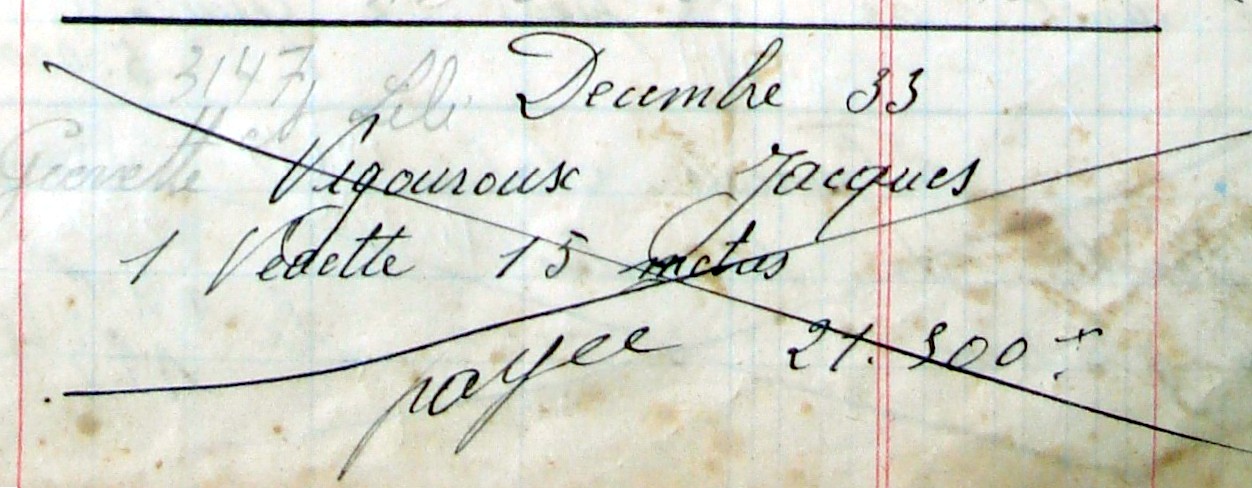 Decembre 33
3147 Lili
Vigouroux Jacques
1 Vedette 15 metres
payee 21.500